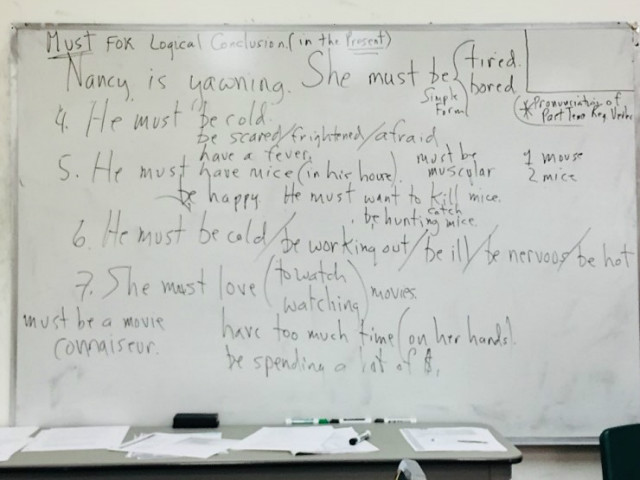 Must FOR Logical Conclusion. (in the Present)
Nancy is yawning. She must be { tired.
bored.
Simple
Form
* Pronunciation of
Past Tense Reg Verbs
4. He must be cold.
be scared/frightened/afraid
have a fever.
5. He must have mice (in his house).
must be
muscular
1 mouse
2 mice
be happy. He must want to kill mice.
catch
be hunting mice.
6. He must be cold/be working out/be ill/be nervous/be hot
7. She must love (to watch
watching) movies.
must be a movie
connaiseur.
have too much time (on her hands).
be spending a lot of $.